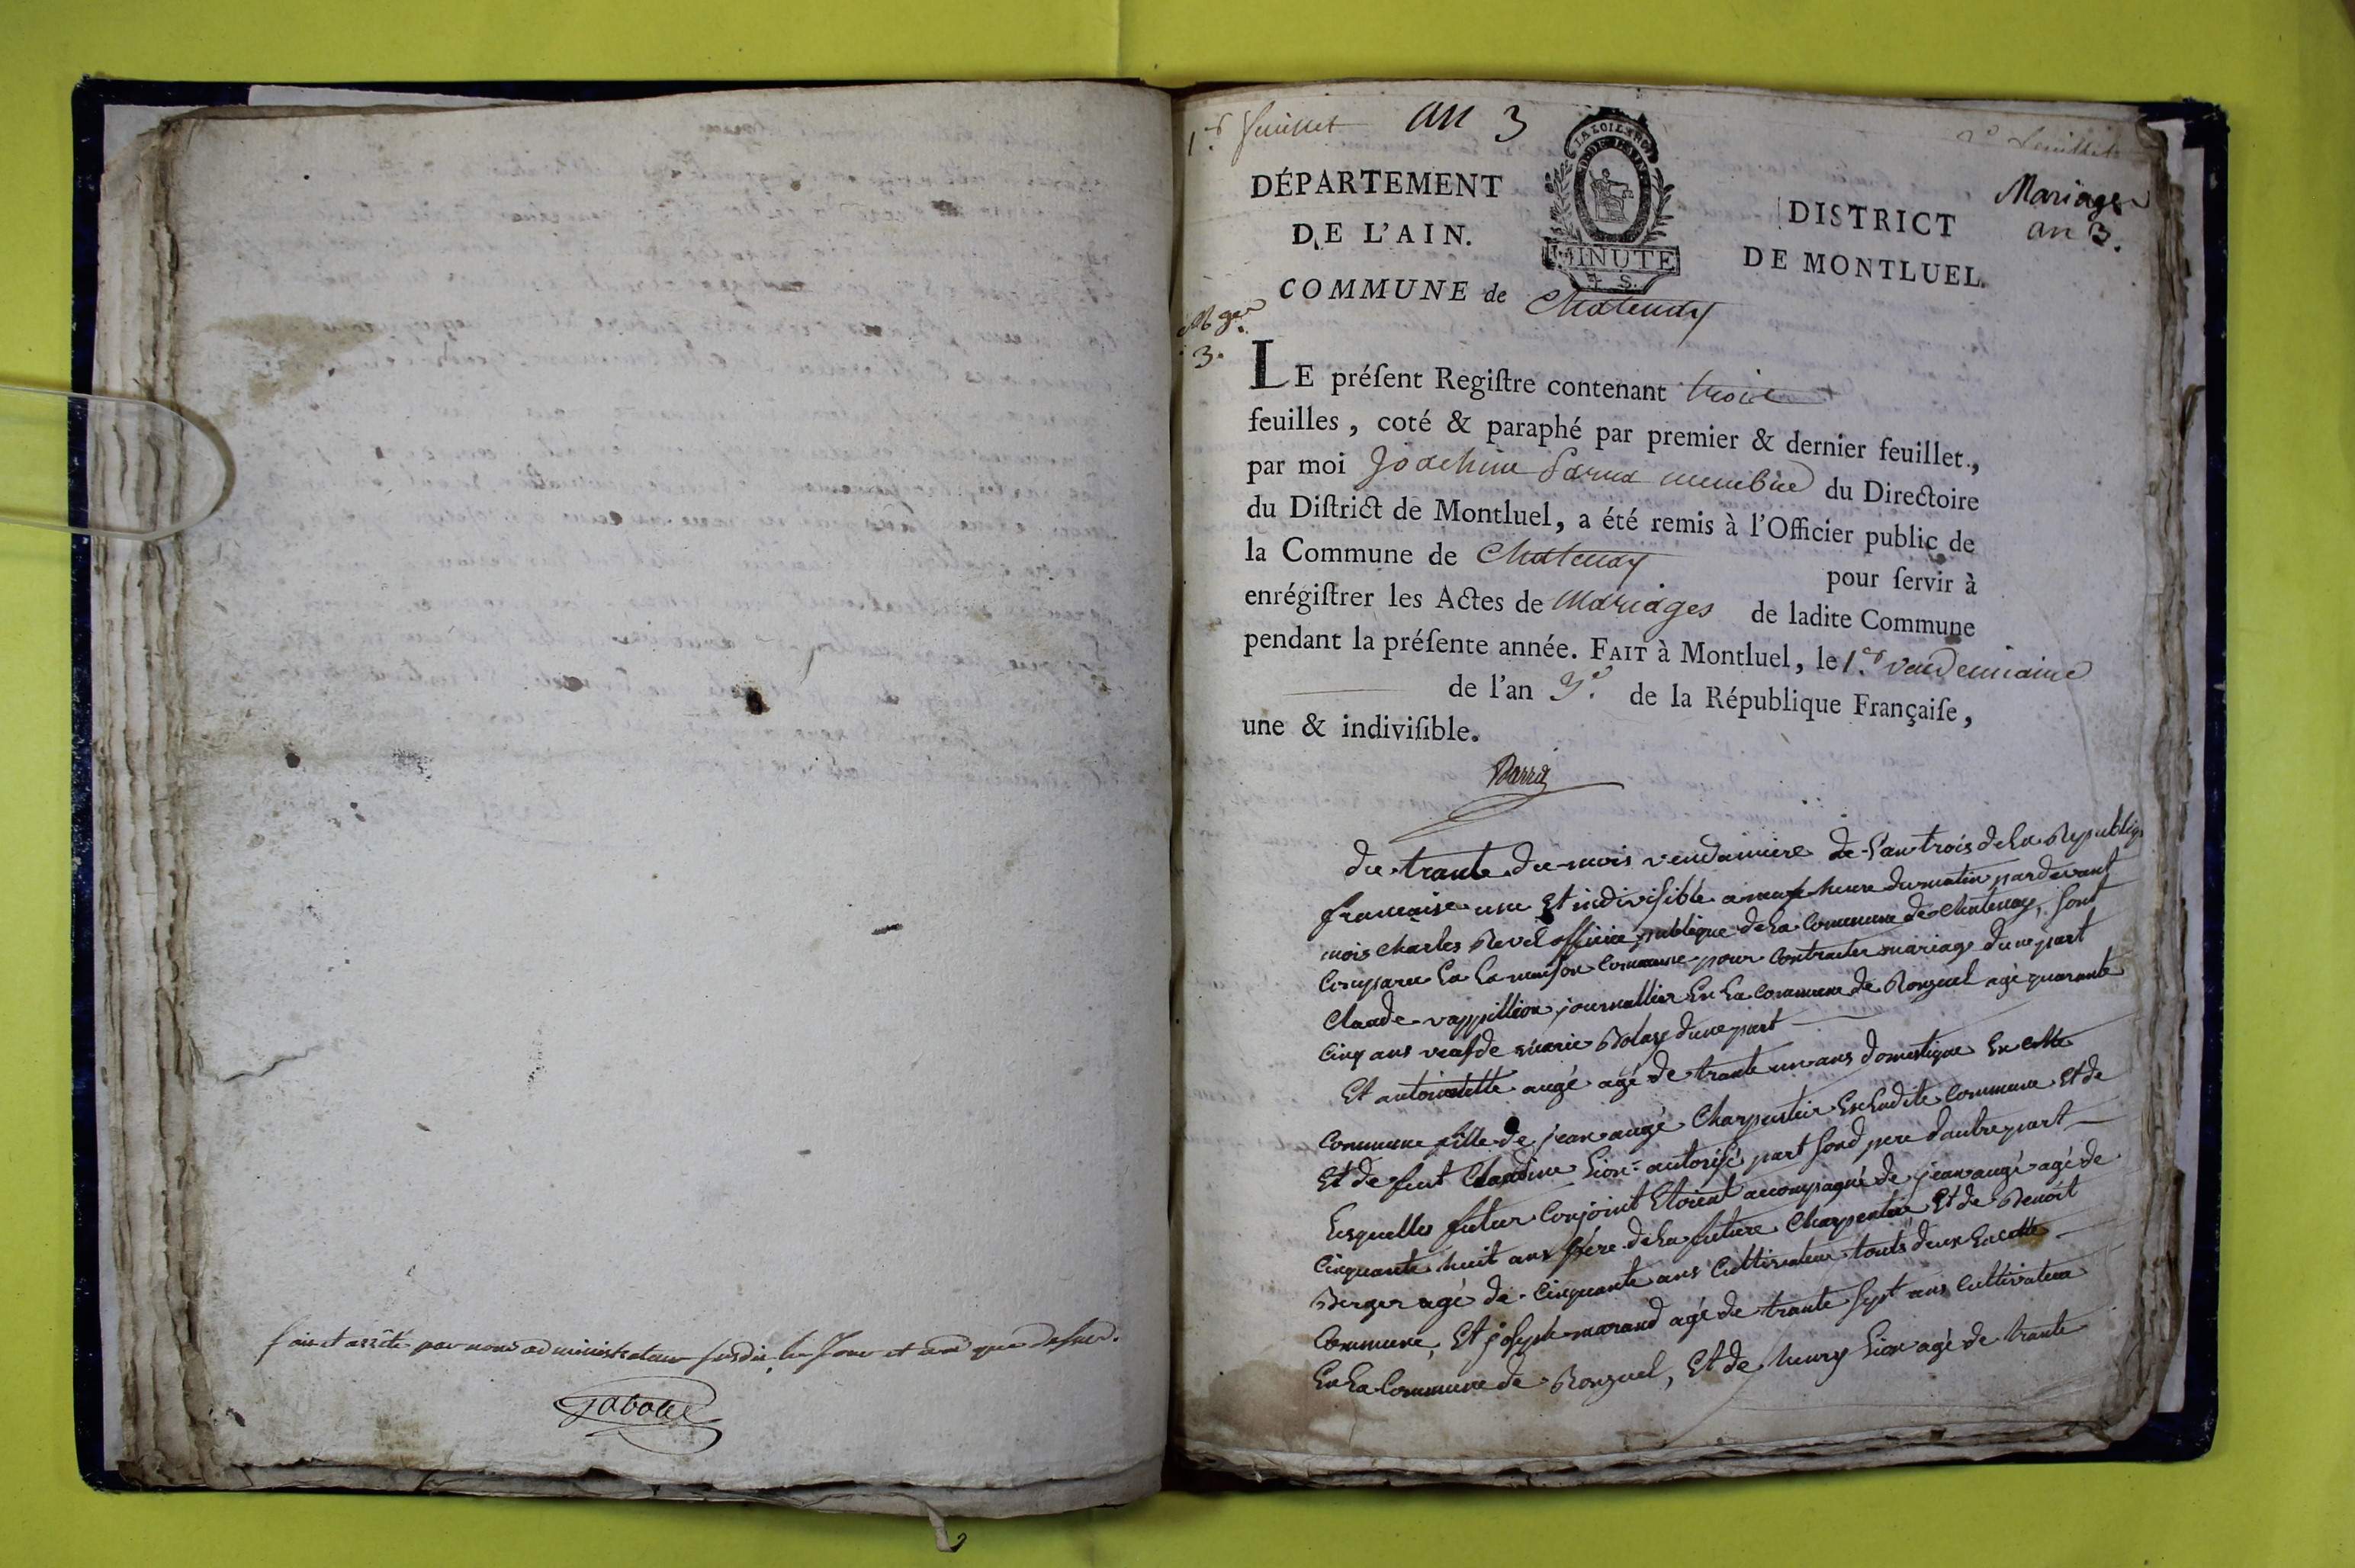 fait et arrêté par nous administrateur susdit, les Jour et an que dessus.
1.er feuillet an 3
LA LOI LE ROI
MINUTE
4 S.
Mariages
an 3.
DÉPARTEMENT
DE L'AIN.
DISTRICT
DE MONTLUEL.
COMMUNE de Chatenay
3.
LE préſent Regiſtre contenant trois
feuilles, coté & paraphé par premier & dernier feuillet,
par moi Joachim membre du Directoire
du Diſtrict de Montluel, a été remis à l'Officier public de
la Commune de Chatenay pour ſervir à
enrégiſtrer les Actes de Mariages de ladite Commune
pendant la préſente année. FAIT à Montluel, le 1.er vendemiaire
de l'an 3.e de la République Françaiſe,
une & indiviſible.
du trante du mois vendamiere de l'an trois de la Republiqu
francaise une Et indivisible a neuf heure du matin pardevant
mois Charles Revel officier publique de la Commune de Chatenay, sont
Comparu En La maison Commune pour Contracter mariage dune part
Claude vappillion journallier En La commune de Ronzuel agé quarante
Cinq ans veuf de marie Bolay dune part
Et antoinette augé agé de trante un ans domestique En cette
Commune fille de jean augé Charpentier En Ladite Commune Et de
Et de feut Claudine Lion autorisé part sond pere dautre part
Lesquelles futur Conjoint Etoient accompagné de jean augé agé de
Cinquante huit ans pere de La future Charpentier Et de Benoit
Berger agé de Cinquante ans Cultivateur touts deux En cette
Commune, Et joseph marand agé de trante sept ans Cultivateur
En La Commune de Ronzuel, Et de henry Lion agé de trante